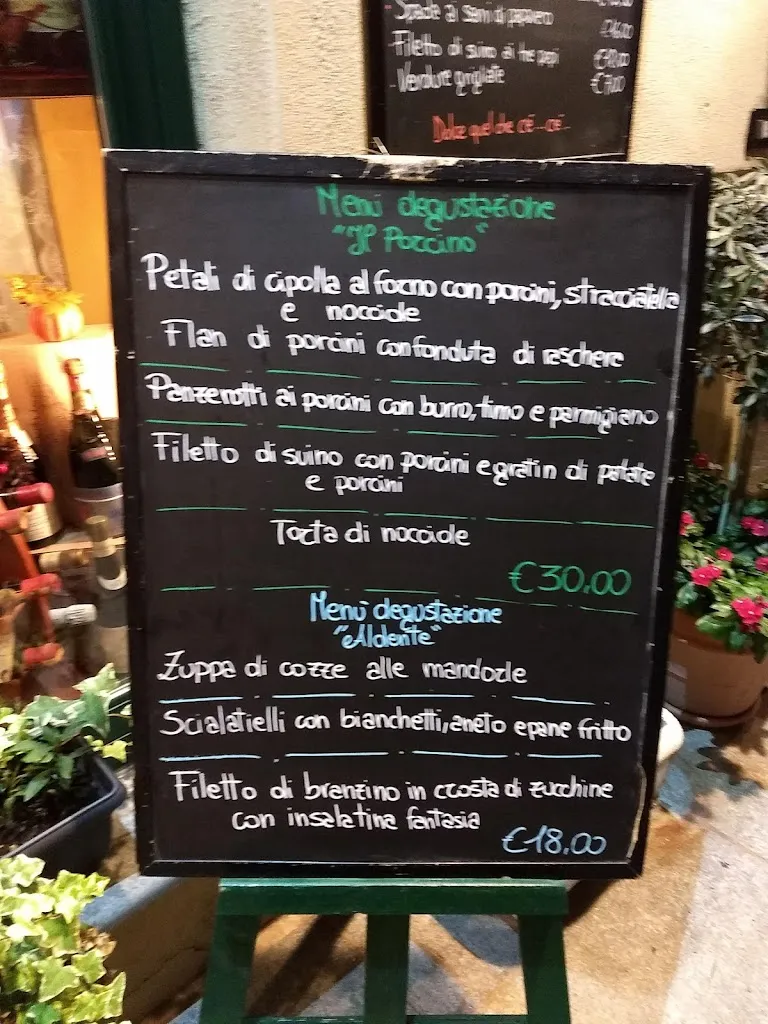 Spada ai semi di papavero
€16.00
Filetto di suino ai tre pepi
Verdure grigliate
€7.00
Dolce quel che c'è-c'è..
Menù degustazione
"Il Porcino"
Petali di cipolla al forno con porcini, stracciatella
e nocciole
Flan di porcini con fonduta di raschera
Panzerotti ai porcini con burro, timo e parmigiano
Filetto di suino con porcini e gratin di patate
e porcini
Torta di nocciole
€30.00
Menù degustazione
"Aldente"
Zuppa di cozze alle mandorle
Scialatielli con bianchetti, aneto e pane fritto
Filetto di branzino in crosta di zucchine
con insalatina fantasia
€18.00